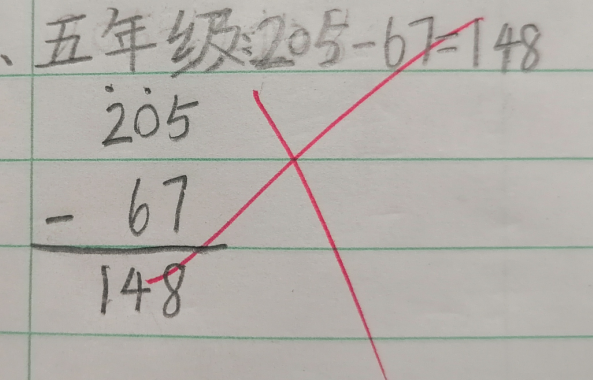 、五年级:205-67=148
205
- 67
148